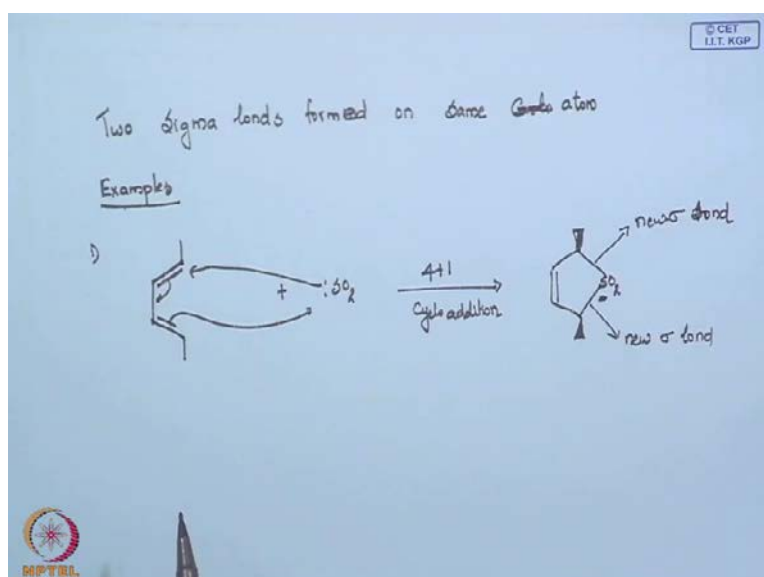 © CET
I.I.T. KGP
Two sigma bonds formed on same atom
Examples
1)
+ :SO2
4+1
Cycloaddition
SO2
new σ bond
new σ bond
NPTEL